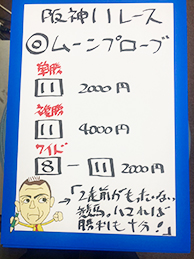 阪神11レース
◎ムーンプローブ
単勝
11 2000円
複勝
11 4000円
ワイド
8 － 11 2000円
「2走前がもったいない
競馬。ハマれば
勝利も十分!」